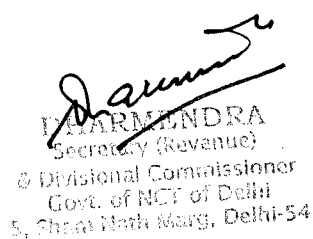 DHARMENDRA
Secretary (Revenue)
& Divisional Commissioner
Govt. of NCT of Delhi
5, Sham Nath Marg, Delhi-54